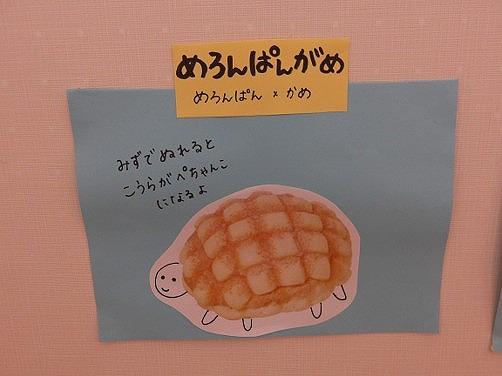 めろんぱんがめ
めろんぱん × かめ
みずでぬれると
こうらがぺちゃんこ
になるよ